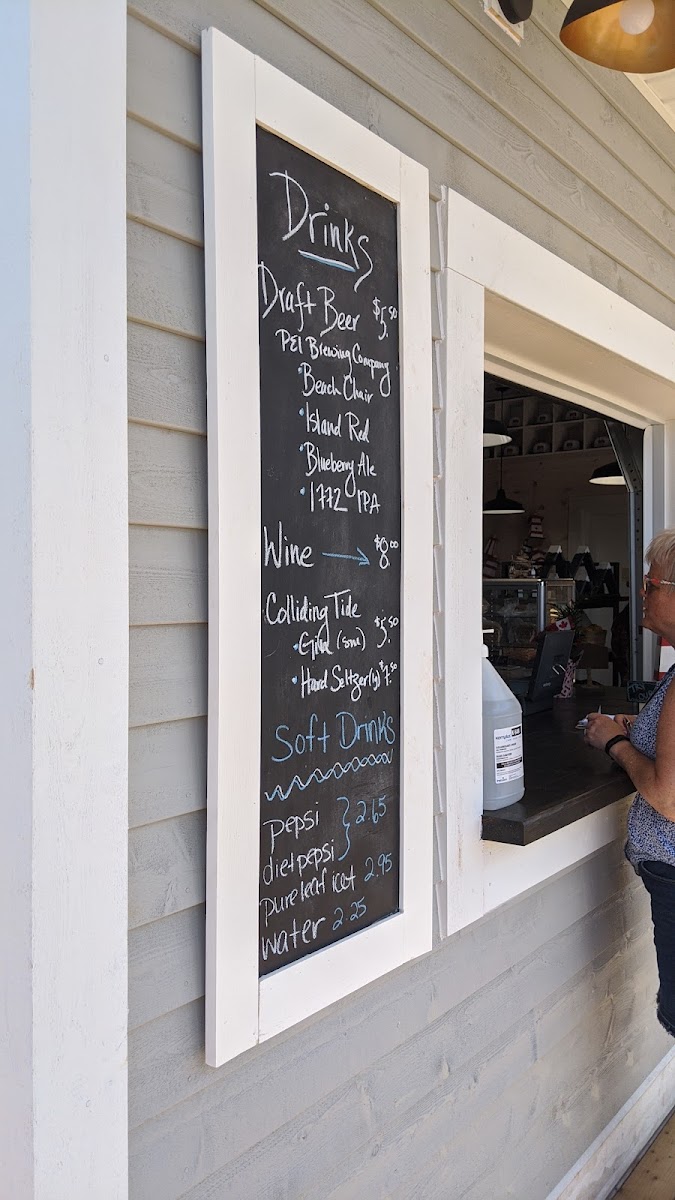 Drinks
Draft Beer $5.50
PEI Brewing Company
• Beach Chair
• Island Red
• Blueberry Ale
• 1772 IPA
Wine → $8.00
Colliding Tide
• (sm) $5.50
• Hard Seltzer (lg) $7.50
Soft Drinks
pepsi } 2.65
diet pepsi
pure leaf icet 2.95
water 2.25